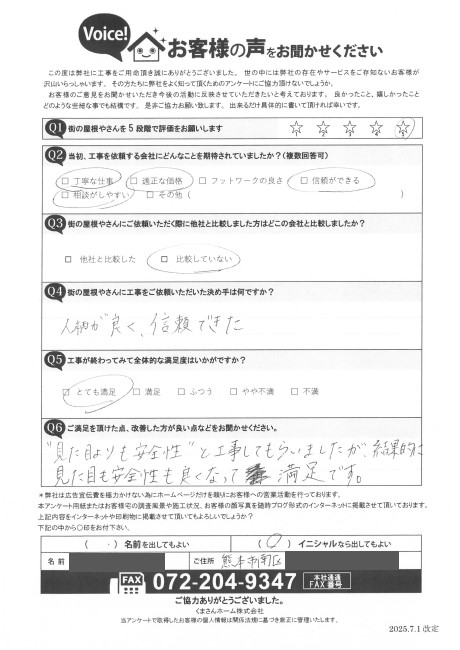 Voice! お客様の声をお聞かせください
この度は弊社に工事をご用命頂き誠にありがとうございました。 世の中には弊社の存在やサービスをご存知ないお客様が
沢山いらっしゃいます。 その方たちに弊社をよく知って頂くためのアンケートにご協力頂けないでしょうか。
お客様のご意見をお聞かせいただき今後の活動に反映させていただきたいと考えております。 良かったこと、嬉しかったこと
どのような些細な事でも結構です。 是非ご協力お願い致します。 出来るだけ具体的に書いて頂ければ幸いです。
Q1 街の屋根やさんを5段階で評価をお願いします
Q2 当初、工事を依頼する会社にどんなことを期待されていましたか?(複数回答可)
□ 丁寧な仕事 □ 適正な価格 □ フットワークの良さ □ 信頼ができる
□ 相談がしやすい □ その他( )
Q3 街の屋根やさんにご依頼いただく際に他社と比較しました方はどこの会社と比較しましたか?
□ 他社と比較した □ 比較していない
Q4 街の屋根やさんに工事をご依頼いただいた決め手は何ですか?
人柄が良く、信頼できた
Q5 工事が終わってみて全体的な満足度はいかがですか?
□ とても満足 □ 満足 □ ふつう □ やや不満 □ 不満
Q6 ご満足を頂けた点、改善した方が良い点などをお聞かせください。
"見た目よりも安全性"と工事してもらいましたが、結果的に
見た目も安全性も良くなって 満足です。
*弊社は広告宣伝費を極力かけない為にホームページだけを頼りにお客様への営業活動を行っております。
本アンケート用紙またはお客様宅の調査風景や施工状況、お客様の顔写真を随時ブログ形式のインターネットに掲載させて頂いております。
上記内容をインターネットや印刷物に掲載させて頂いてもよろしいでしょうか?
下記の中から〇印をお付下さい。
( ・ ) 名前を出してもよい ( 〇 ) イニシャルなら出してもよい
名前 ご住所 熊本市南区
FAX 072-204-9347 本社通通 FAX番号
ご協力ありがとうございました。
くまさんホーム株式会社
当アンケートで取得したお客様の個人情報は関係法規に基づき厳正に管理いたします。
2025.7.1 改定